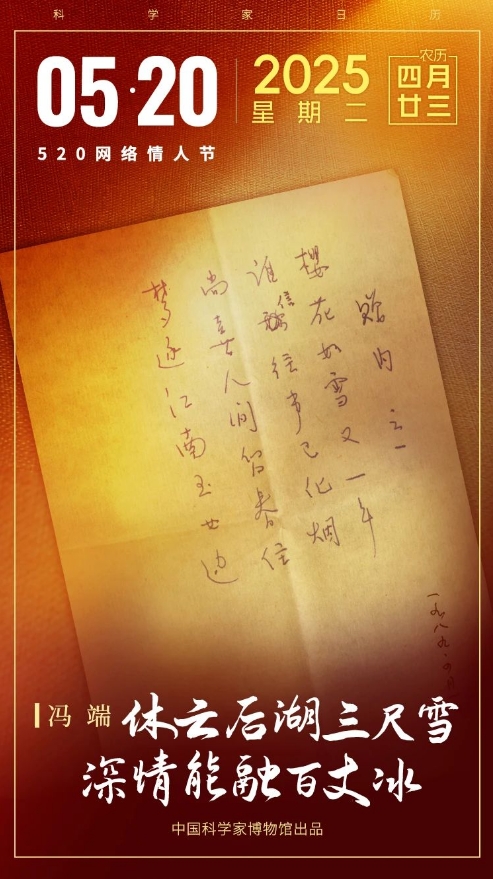 科学家日历
05·20
2025
星期二
农历
四月
廿三
520网络情人节
赠内之一
樱花如雪又一年
谁信往事已化烟
尚喜人间留春住
梦逐江南玉女边
一九八九·四月
冯端
休云后湖三尺雪
深情能融百丈冰
中国科学家博物馆出品